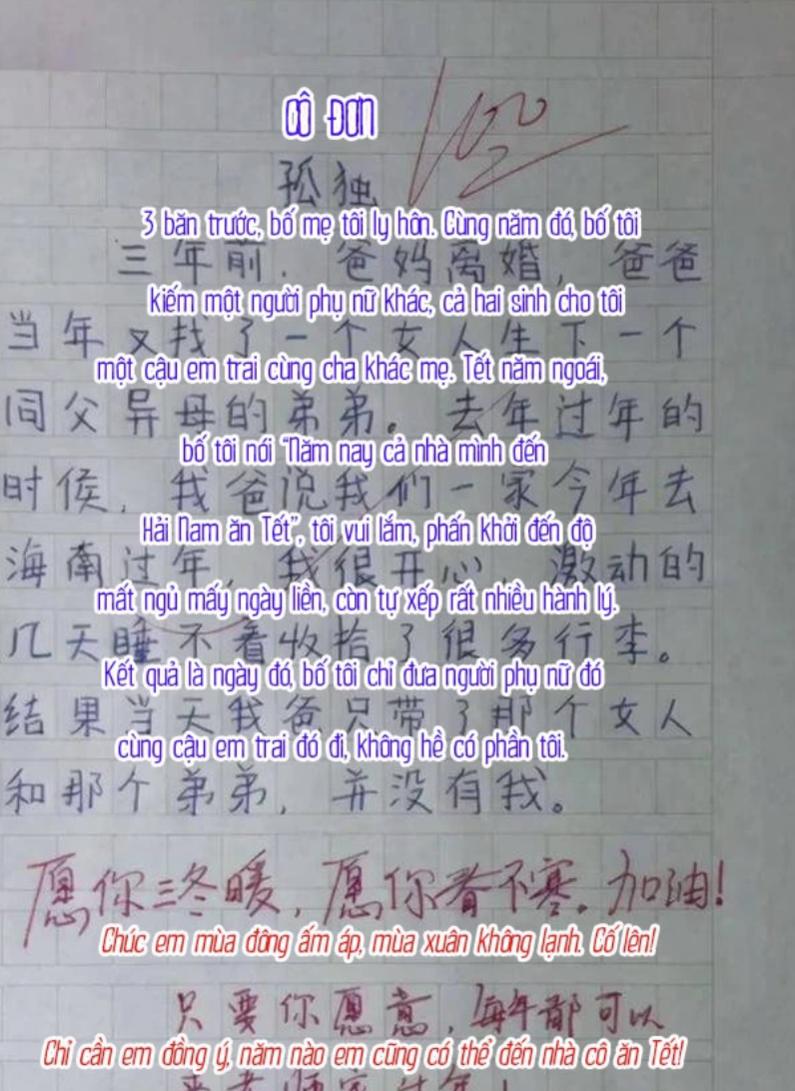 CÔ ĐƠN
100
孤独
3 băn trước, bố mẹ tôi ly hôn. Cùng năm đó, bố tôi
三年前.爸妈离婚,爸爸
kiếm một người phụ nữ khác, cả hai sinh cho tôi
当年又找了一个女人生下一个
một cậu em trai cùng cha khác mẹ. Tết năm ngoái,
同父异母的弟弟。去年过年的
bố tôi nói "Năm nay cả nhà mình đến
时候,我爸说我们一家今年去
Hải Nam ăn Tết", tôi vui lắm, phấn khởi đến độ
海南过年,我很开心 激动的
mất ngủ mấy ngày liền, còn tự xếp rất nhiều hành lý.
几天睡不着收拾了很多行李。
Kết quả là ngày đó, bố tôi chỉ đưa người phụ nữ đó
结果当天我爸只带了那个女人
cùng cậu em trai đó đi, không hề có phần tôi.
和那个弟弟,并没有我。
愿你三冬暖,愿你春不寒。加油!
Chúc em mùa đông ấm áp, mùa xuân không lạnh. Cố lên!
只要你愿意,每年都可以
Chỉ cần em đồng ý, năm nào em cũng có thể đến nhà cô ăn Tết!